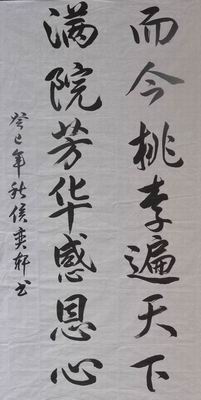 而今桃李遍天下
满院芳华感恩心
癸巳年秋侯奕轩书